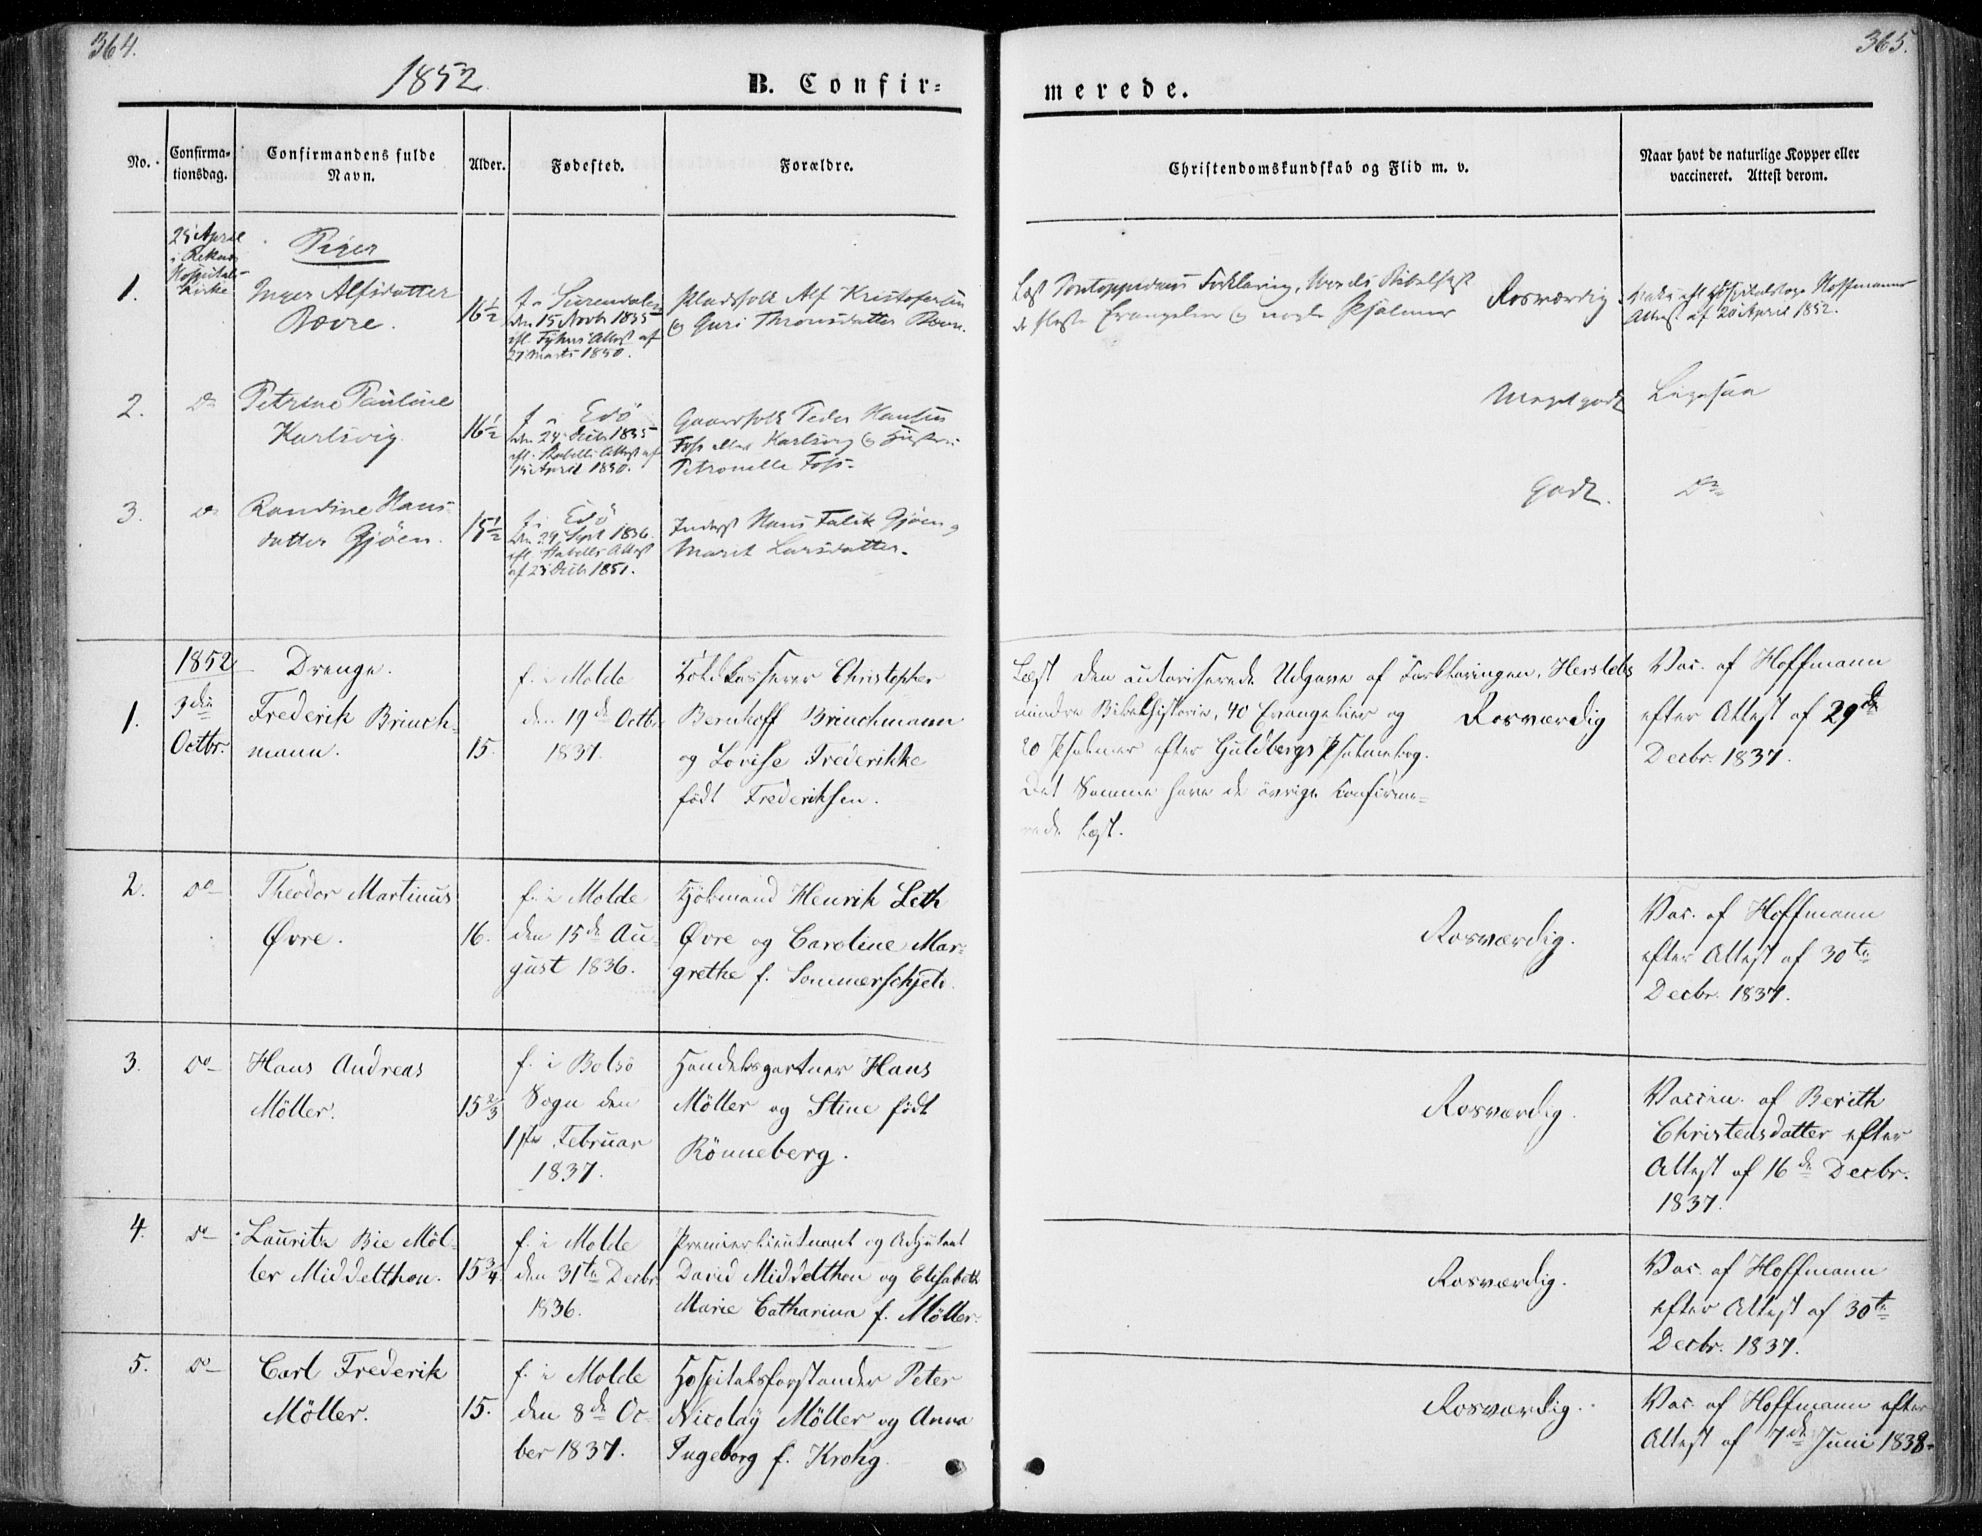 364.
1852
B. Confir=
No.
Confirma=
tionsdag.
Confirmandens fulde
Navn.
Alder.
Fødested.
Forældre.
25 April
i Reknes
Hospitals-
Kirke
Piger
1.
Inger Alfsdatter
Bævre.
16½
f. i Surendalen
den 15 Novbr 1835
efl. Attest af
27 Marts 1850.
Pladsfolk Alf Kristofersen
og Guri Thronsdatter Bævre.
2.
Do
Petrine Pauline
Karlsvig
16½
f. i Edö
den 24 Decbr 1835
efl. Stabells Attest af
April 1850.
Gaardfolk Peder Hansen
Foss eller Karlsvig og Hustru
Petronelle Foss.
3.
Do
Randine Hans-
datter Gjöen.
15½
f. i Edö
den 29 Sept 1836.
efl. Stabells Attest
af 23 Decbr 1851.
Inderst Hans Falik Gjöen og
Marit Larsdatter.
1852
3die
Octbr.
Drenge.
1.
Frederik Brinch-
mann.
15.
f. i Molde
den 19de Octbr
1837.
Toldkasserer Christopher
Bernhoff Brinchmann
og Lovise Frederikke
født Frederiksen.
2.
Do
Theodor Martinus
Øvre.
16.
f. i Molde
den 15de Au-
gust 1836.
Kjøbmand Henrik Leth
Øvre og Caroline Mar-
grethe f. Sommerschjeld.
3.
Do
Hans Andreas
Möller.
15⅔
f. i Bolsö
Sogn den
1ste Februar
1837.
Handelsgartner Hans
Möller og Stine født
Rönneberg.
4.
Do
Lauritz Bie Möl-
ler Middelthon.
15¾
f. i Molde
den 31te Decbr
1836.
Premierlieutnant og Adjutant
David Middelthon og Elisabeth
Marie Catharina f. Möller.
5.
Do
Carl Frederik
Möller.
15.
f. i Molde
den 8de Oc-
ber 1837.
Hospitalsforstander Peter
Nicolaÿ Möller og Anna
Ingeborg f. Krohg.
365.
merede.
Christendomskundskab og Flid m. v.
Naar havt de naturlige Kopper eller
vaccineret. Attest derom.
Læst Pontoppidans Forklaring, Vords Bibelhist
de fleste Evangelier og nogle Psalmer
Rosværdig
efl. Hospitalslæge Hoffmanns
Attest af 20 April 1852.
Meget godt
Ligesaa
Godt.
Do
Læst den autoriserede Udgave af Forklaringen, Herslebs
mindre Bibelhistorie, 40 Evangelier og
20 Psalmer efter Guldbergs Psalmebog.
Det Samme have de øvrige Confirme=
rede læst.
Rosværdig
Vac. af Hoffmann
efter Attest af 29de
Decbr. 1837.
Rosværdig.
Vac. af Hoffmann
efter Attest af 30te
Decbr. 1837.
Rosværdig.
Vaccin. af Berith
Christensdatter efter
Attest af 16de Decbr.
1837.
Rosværdig.
Vac. af Hoffmann
efter Attest af 30te
Decbr. 1837.
Rosværdig.
Vac. af Hoffmann efter
Attest af 7de Juni 1838.